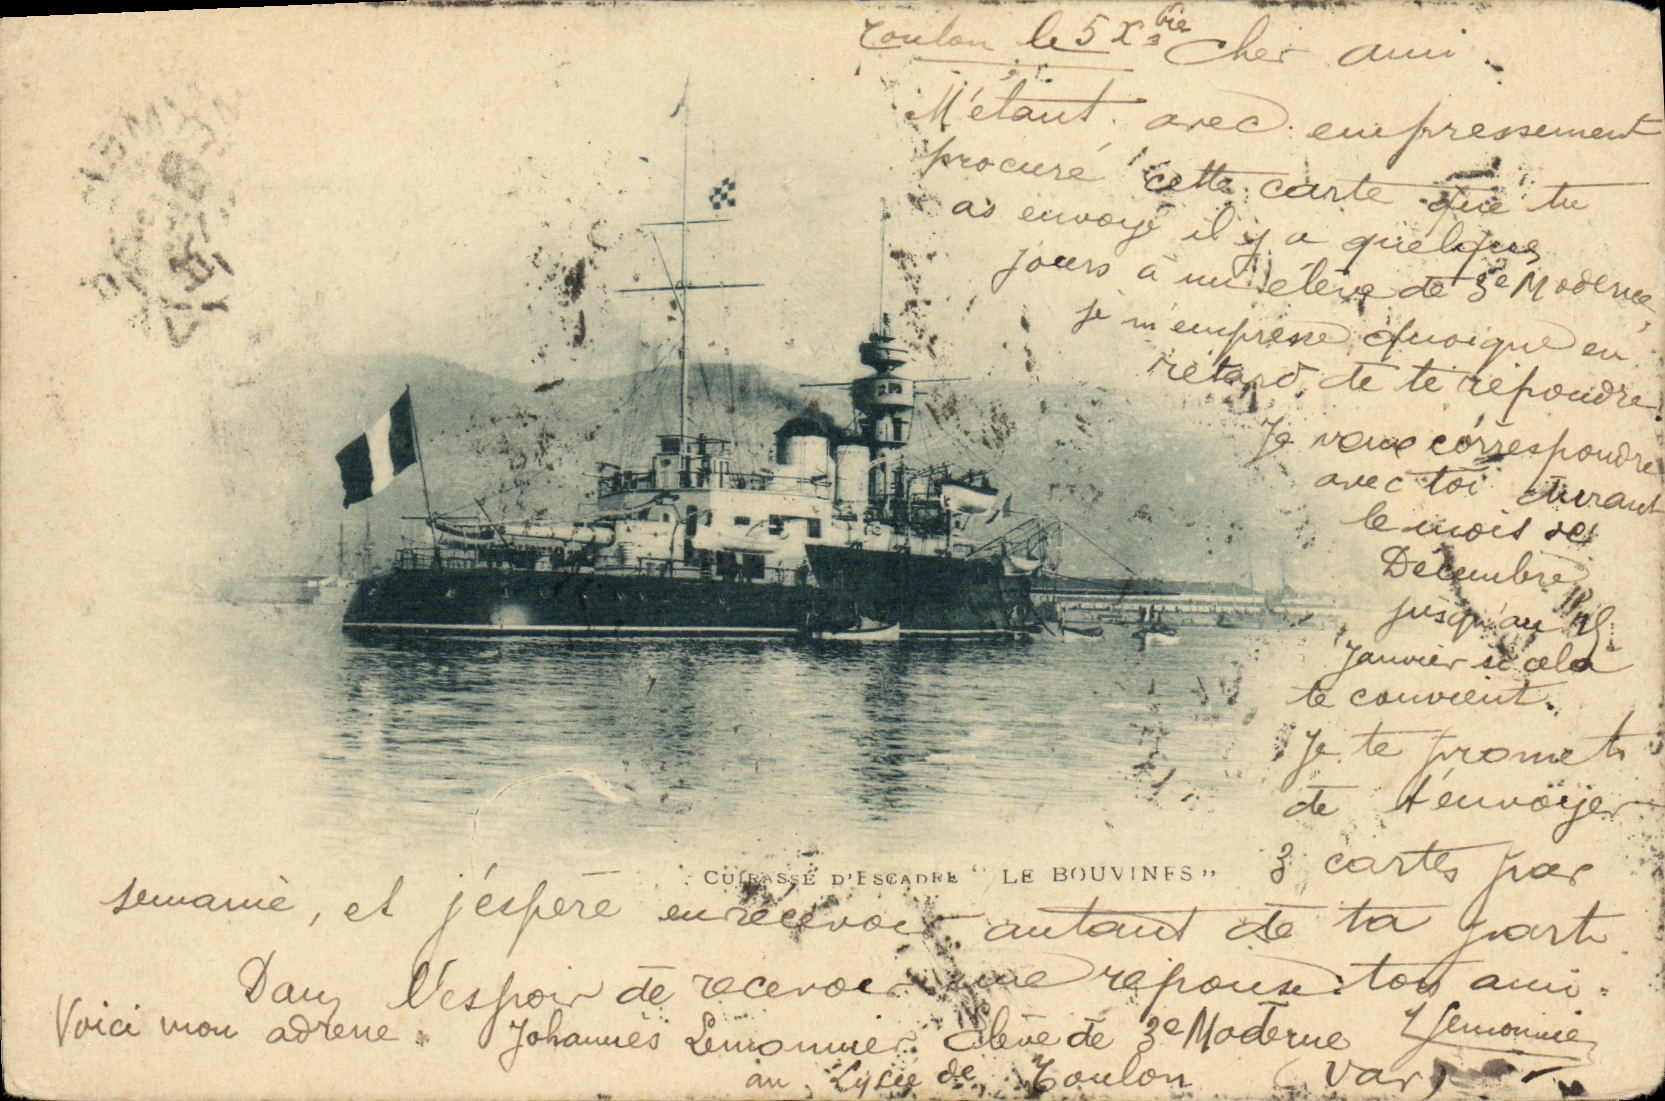 Toulon le 5 Xbre Cher ami
M'étant avec empressement
procuré cette carte que tu
as envoyé il y a quelques
jours à un élève de 3e Moderne,
je m'empresse quoique en
retard de te répondre.
Je veux correspondre
avec toi durant
le mois de
Décembre
jusqu'au 15
Janvier si cela
te convient.
Je te promets
de t'envoyer
CUIRASSÉ D'ESCADRE "LE BOUVINES"
3 cartes par
semaine, et j'espère en recevoir autant de ta part
Dans l'espoir de recevoir une réponse ton ami.
Voici mon adresse. Johannès Lemonnier élève de 3e Moderne Lemonnier
au Lycée de Toulon (Var)